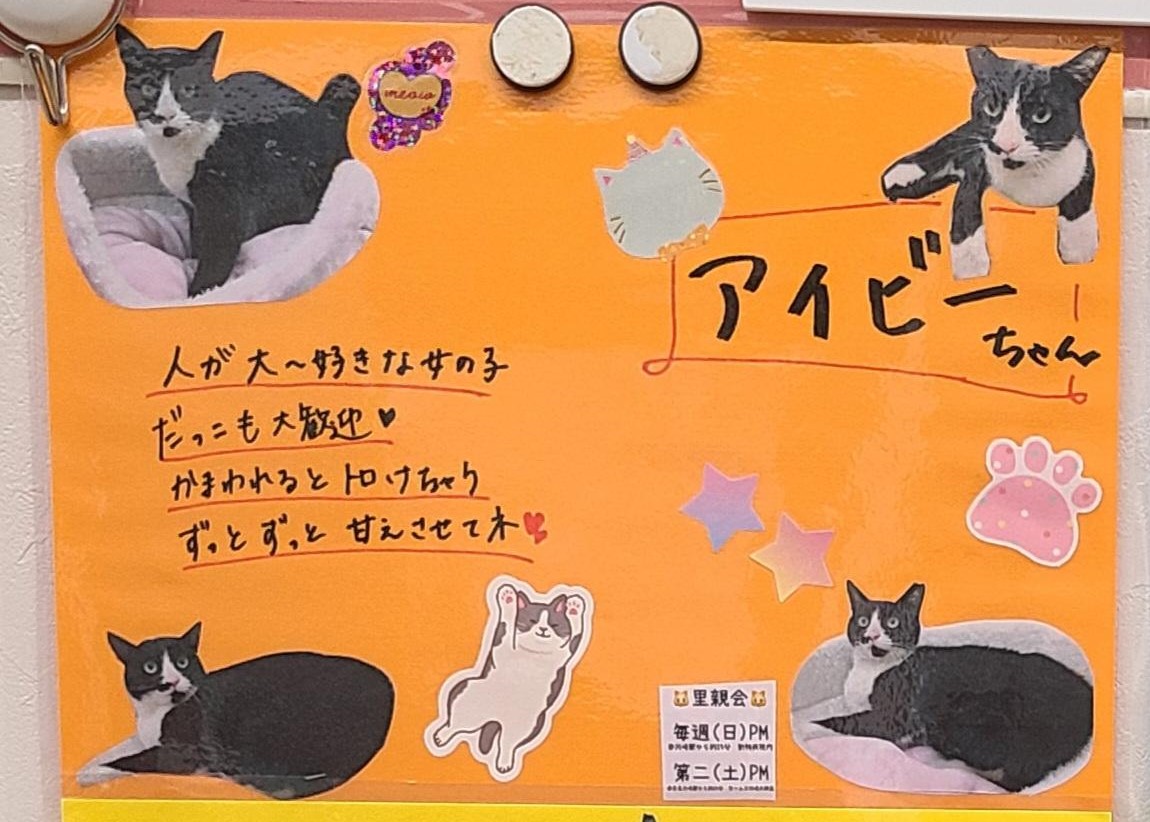 meow
アイビー
ちゃん
人が大~好きな女の子
だっこも大歓迎♥
かまわれるとトロけちゃう
ずっとずっと甘えさせてネ♥
里親会
毎週(日)PM
第二(土)PM